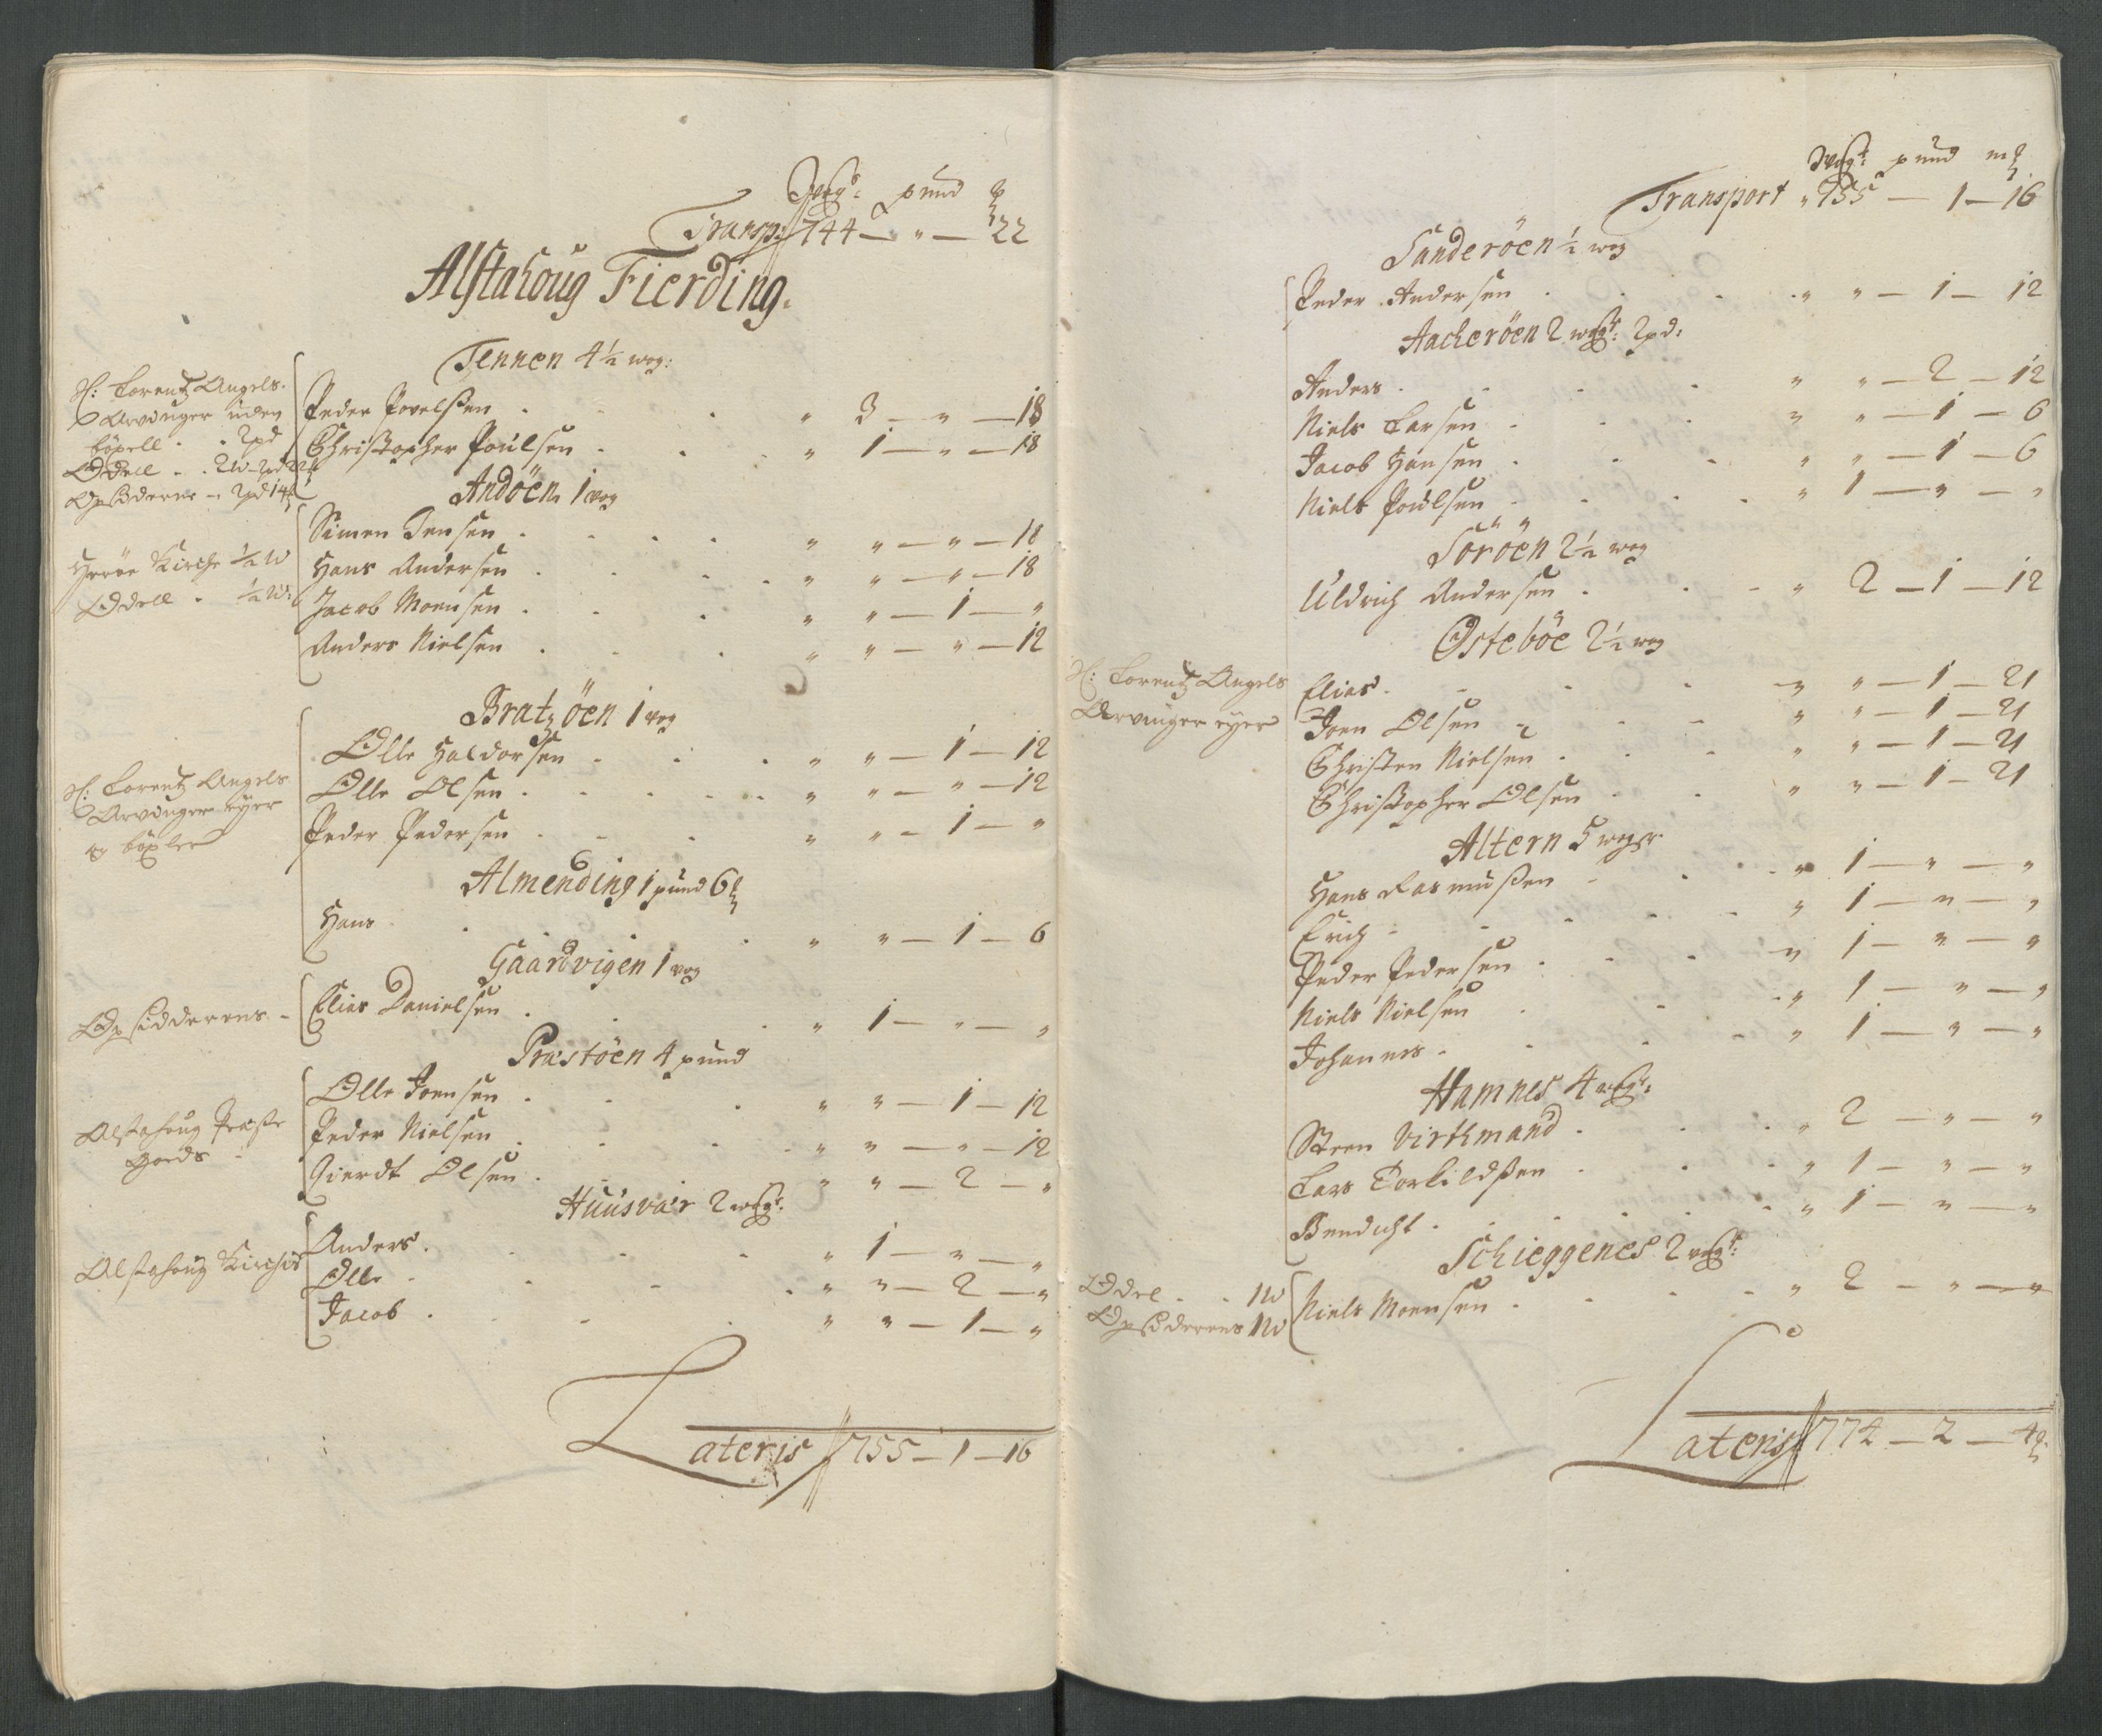 Wogr: pund ℔
Transp: 744 — " — 22
Alstahoug Fierding.
Tennen 4½ wog:
H: Lorentz Angels.
Arvinger uden
böxell . . 2pd
Odell . . 2W 2pd 22
Opsidderne - 2pd 14
Peder Povelsen . . " 3 — " — 18
Christopher Poulsen . . " 1 — " — 18
Andöen 1 wog
Herröe Kirche ½ W
Odell . ½ W:
Simen Jensen . . . " " — " — 18
Hans Andersen . . . " " — " — 18
Jacob Moensen . . . " " — 1 — "
Anders Nielsen . . . " " — " — 12
Bratzöen 1 wog
H: Lorentz Angels
Arvinger eyer
og böxler
Olle Haldorsen . . . " " — 1 — 12
Olle Olsen . . . . " " — " — 12
Peder Pedersen . . . " " — 1 — "
Almending 1 pund 6 ℔
Hans . . . . " " — 1 — 6
Gaardvigen 1 wog
Opsidderens -
Elias Danielsen . . . " 1 — " — "
Præstöen 4 pund
Alstahoug Præste
gords -
Olle Joensen . . . " " — 1 — 12
Peder Nielsen . . . " " — " — 12
Sierdt Olsen . . . " " — 2 — "
Huusvær 2 wogr:
Alstahoug Kirches
Anders . . . . " 1 — " — "
Olle . . . . " " — 2 — "
Jacob . . . . " " — 1 — "
Lateris 755 — 1 — 16
Wogr: pund m℔
Transport " 755 — 1 — 16
Sanderöen ½ wog
Peder Andersen . . . " " — 1 — 12
Aacheröen 2 wogr: 2pd:
Anders . . . . " " — 2 — 12
Niels Larsen . . . " " — 1 — 6
Jacob Hansen . . . " " — 1 — 6
Niels Poulsen . . . " 1 — " — "
Söröen 2½ wog
Uldrich Andersen . . . " 2 — 1 — 12
Östeböe 2½ wog
H: Lorentz Angels
Arvinger eyer
Elias . . . . " " — 1 — 21
Joen Olsen . . . " " — 1 — 21
Christen Nielsen . . . " " — 1 — 21
Christopher Olsen . . " " — 1 — 21
Altern 5 wogr.
Hans Rasmussen . . . " 1 — " — "
Erich . . . . " 1 — " — "
Peder Pedersen . . . " 1 — " — "
Niels Nielsen . . . " 1 — " — "
Johanes . . . . " 1 — " — "
Hamnes 4 wogr:
Steen Virthmand . . . " 2 — " — "
Lars Torkildsen . . . " 1 — " — "
Bendicht . . . . " 1 — " — "
Schieggenes 2 wogr:
Odel . . 1W
Opsidderens 1W
Niels Moensen . . . " 2 — " — "
Lateris 774 — 2 — 4 ℔